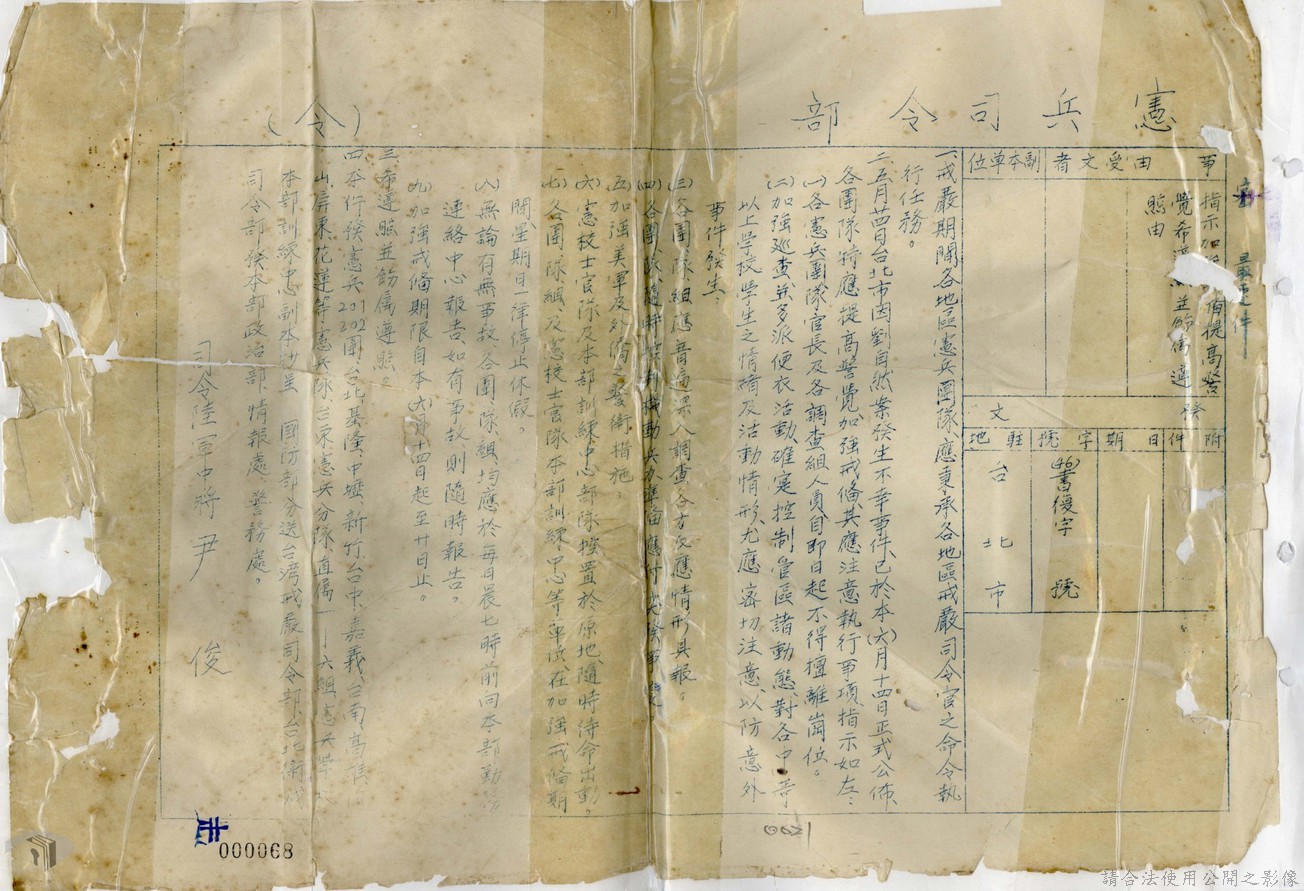 憲兵司令部(令)
最速件
事由
指示加強戒備提高警
覺希遵照並飭屬遵
照由
受文者
副本單位
發文
附件
日期
字號
(46)書優字 號
駐地
台北市
一戒嚴期間各地區憲兵團隊應秉承各地區戒嚴司令官之命令執
行任務。
二五月廿四日台北市因劉自然案發生不幸事件已於本(六)月十四日正式公佈
各團隊特應提高警覺加強戒備其應注意執行事項指示如左：
(一)各憲兵團隊官長及各調查組人員自即日起不得擅離崗位。
(二)加強巡查並多派便衣活動確實控制管區諸動態對各中等
以上學校學生之情緒及活動情形尤應密切注意以防意外
事件發生。
(三)各團隊組應普遍深入調查各方反應情形具報。
(四)各團隊隨時機動兵力準備應付突發事變
(五)加強美軍及外僑之警衛措施。
(六)憲校士官隊及本部訓練中心部隊控置於原地隨時待命出動。
(七)各團隊組及憲校士官隊本部訓練中心等單位在加強戒備期
間星期日一律停止休假。
(八)無論有無事故各團隊組均應於每日晨七時前向本部勤務
連絡中心報告如有事故則隨時報告。
(九)加強戒備期限自本(六)月十四日起至廿日止。
三希遵照並飭屬遵照。
四本件發憲兵201 302團台北基隆中壢新竹台中嘉義台南高雄
山屏東花蓮等憲兵隊憲兵分隊直屬一—六組憲兵學校
本部訓練中心副本抄呈 國防部分送台灣戒嚴司令部台北衛戍
司令部發本部政治部情報處警務處。
司令陸軍中將尹 俊
000068
0021
請合法使用公開之影像